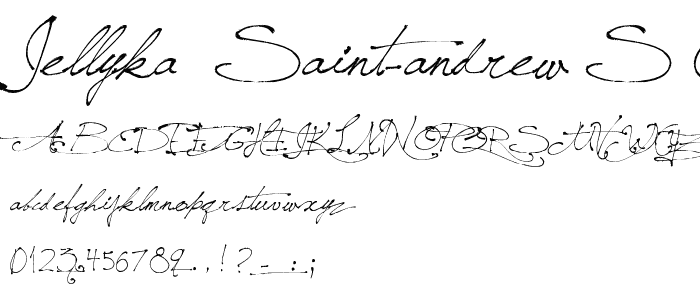 Jellyka Saint-andrew S
ABCDEFGHIJKLMNOPQRSTUVWXYZ
abcdefghijklmnopqrstuvwxyz
0123456789.,!?-:;